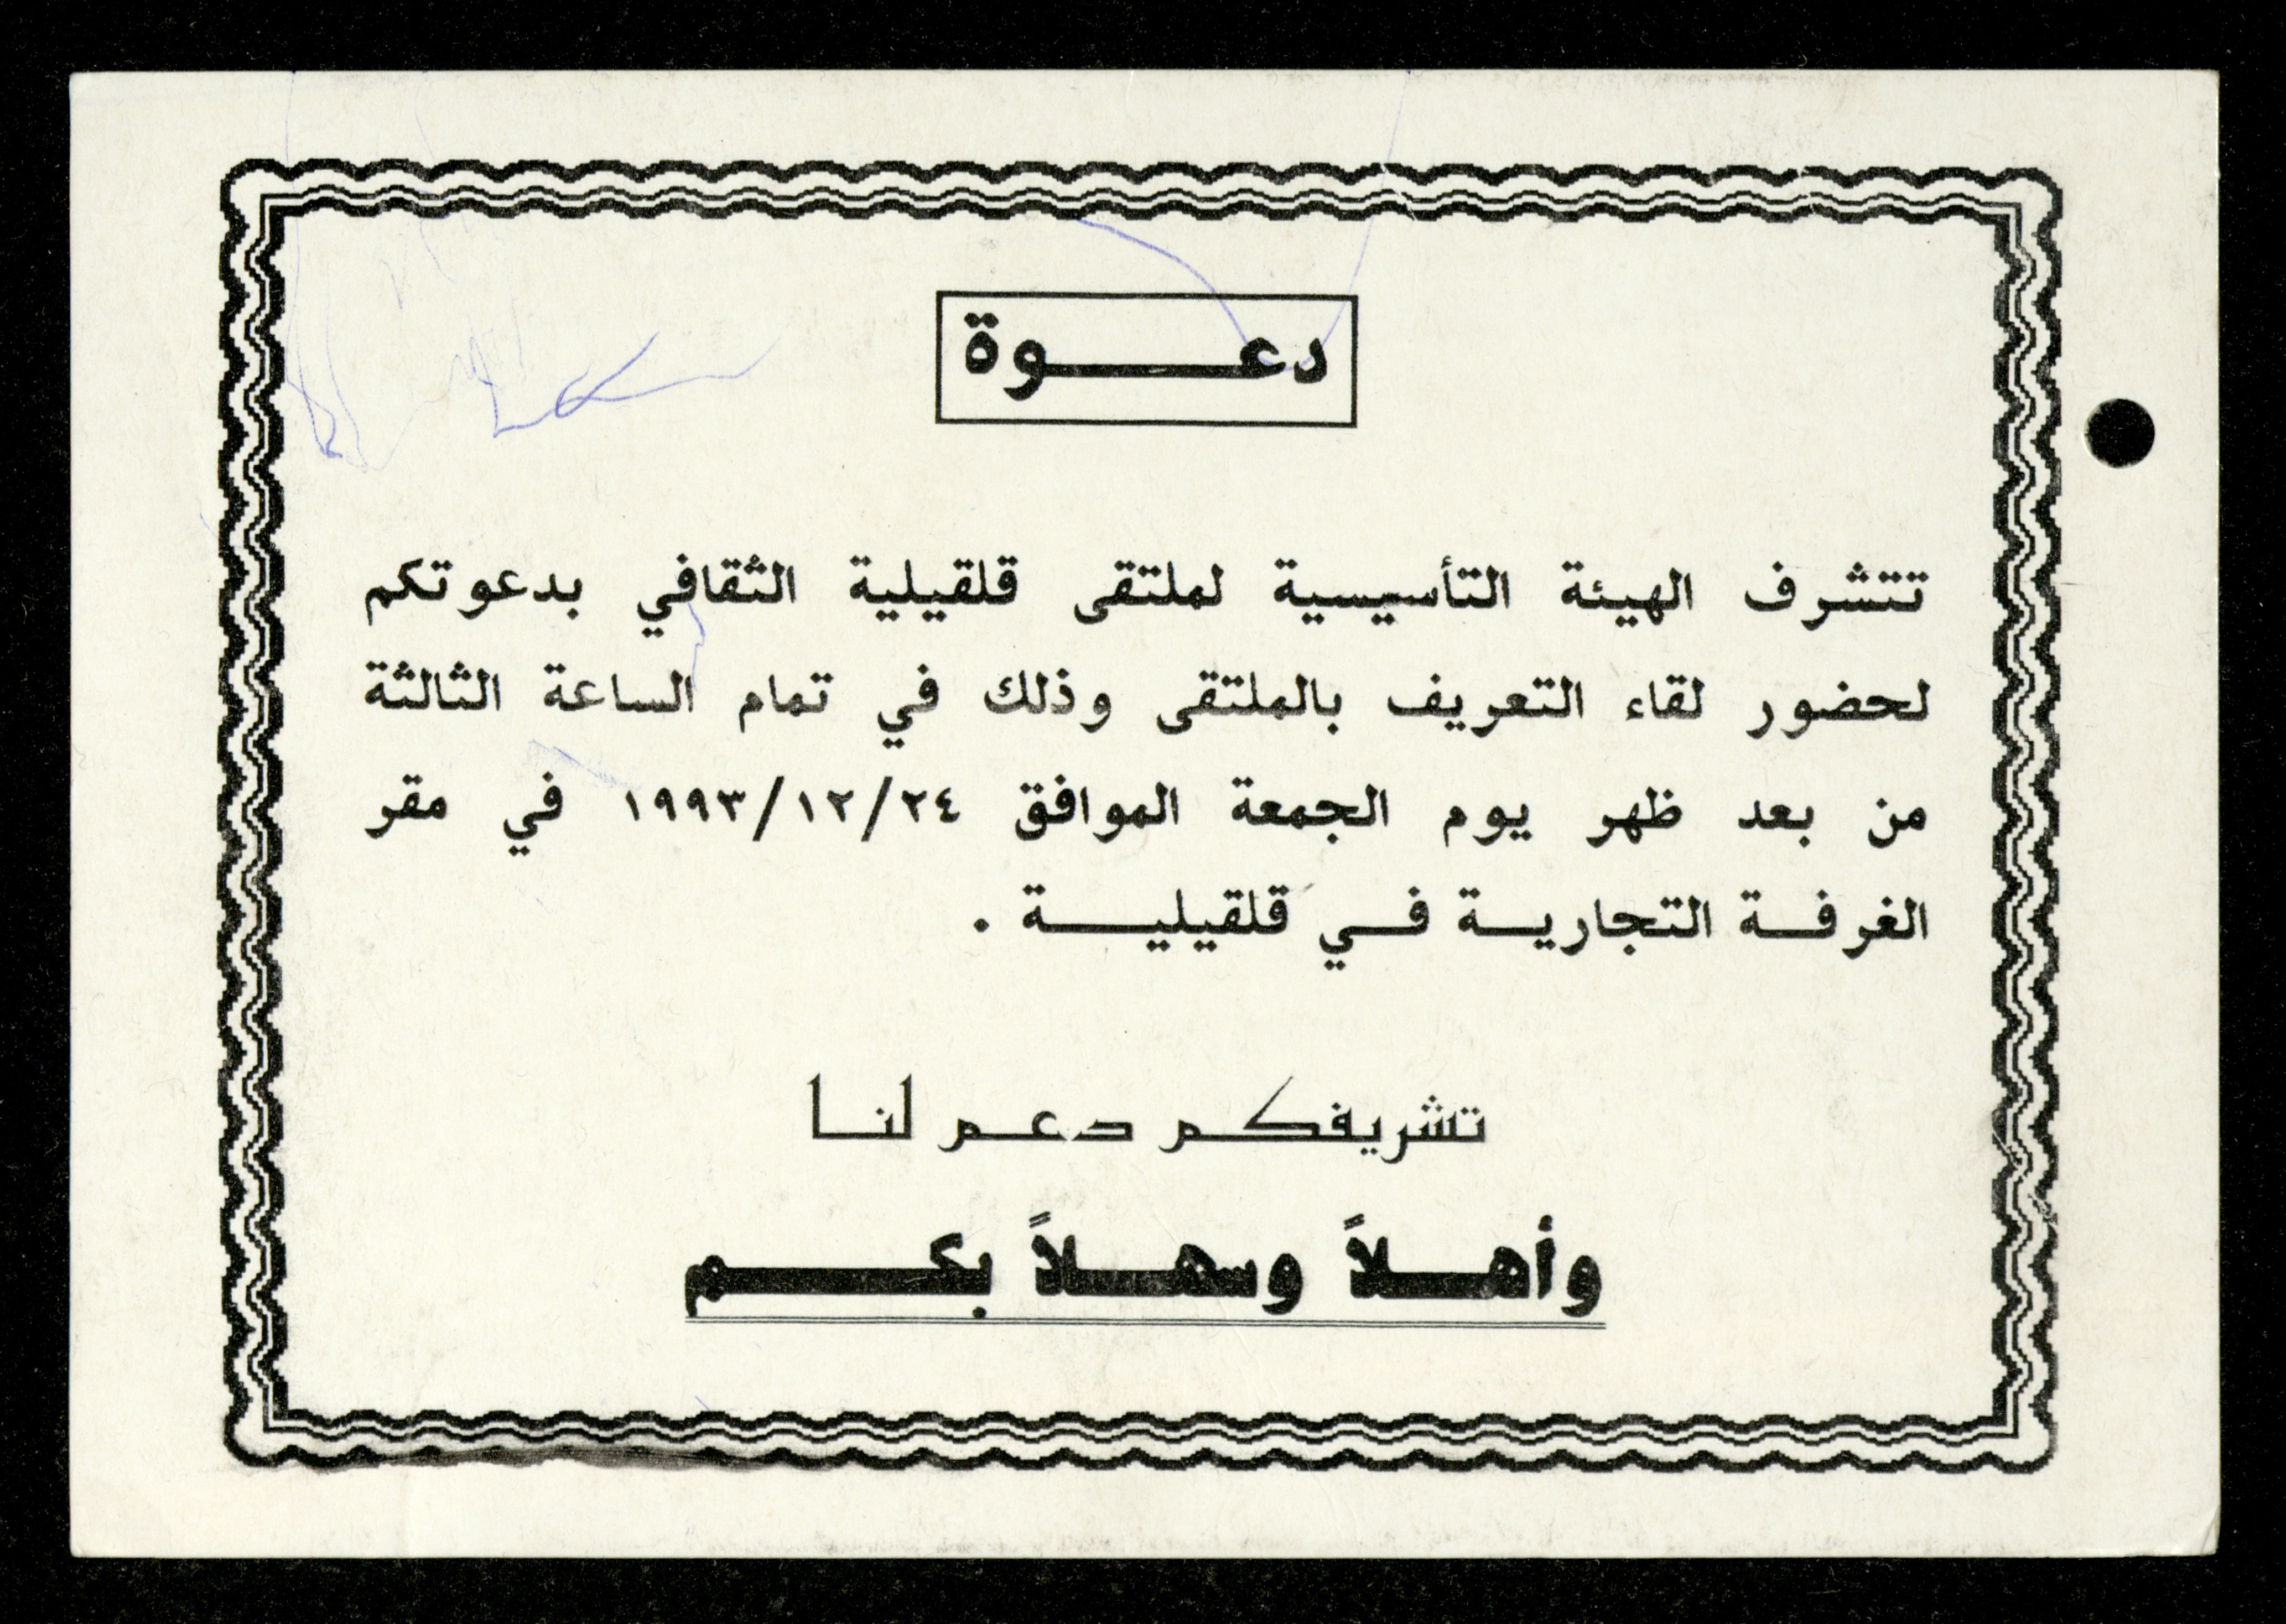 دعوة
تتشرف الهيئة التأسيسية لملتقى قلقيلية الثقافي بدعوتكم
لحضور لقاء التعريف بالملتقى وذلك في تمام الساعة الثالثة
من بعد ظهر يوم الجمعة الموافق ٢٤/١٢/١٩٩٣ في مقر
الغرفة التجارية في قلقيلية .
تشريفكم دعم لنا
وأهلاً وسهلاً بكم